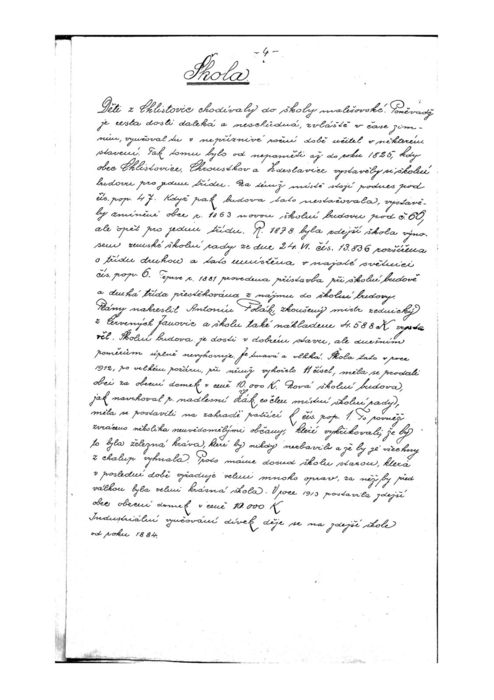 - 4 -
Škola
Děti z Chlistovic chodívaly do školy malešovské. Poněvadž
je cesta dosti daleká a neschůdná, zvláště v čase zim-
ním, vyučoval tu v nepříznivé roční době učitel v některém
stavení. Tak tomu bylo od nepaměti až do roku 1825, kdy
obec Chlistovice, Chroustkov a Kraslavice vystavěly si školní
budovu pro jednu třídu. Na témž místě stojí podnes pod
čís. pop. 47. Když pak budova tato nestačovala, vystavě-
ly zmíněné obce r. 1863 novou školní budovu pod č. 60,
ale opět pro jednu třídu. R. 1878 byla zdejší škola výno-
sem zemské školní rady ze dne 24. VI. čís. 13.836 rozšířena
o třídu druhou a tato umístěna v najaté světnici
čís. pop. 6. Teprve r. 1881 provedena přístavba při školní budově
a druhá třída přestěhována z nájmu do školní budovy.
Plány nakreslil Antonín Polák, zkoušený mistr zednický
z Červených Janovic a školu také nákladem 4.588 K vysta-
věl. Školní budova je dosti v dobrém stavu, ale dnešním
poměrům úplně nevyhovuje. Je tmavá a vlhká. Škola tato v roce
1912, po velkém požáru, při němž vyhořelo 11 čísel, měla se prodati
obci za obecní domek v ceně 10.000 K. Nová školní budova,
jak navrhoval p. nadlesní Žák (člen místní školní rady),
měla se postaviti na zahradě patřící k čís. pop. 1. To rovněž
zvráceno několika neuvědomělými občany, kteří vykřikovali, že by
to byla železná kráva, které by nikdy nezbavili a je by ze všechny
z chalup vyhnala. Proto máme dosud školu starou, která
v poslední době vyžaduje velmi mnoho oprav, za něž by před
válkou byla velmi krásná škola. V roce 1913 postavila zdejší
obec obecní domek v ceně 10.000 K
Industriální vyučování dívek děje se na zdejší škole
od roku 1884.